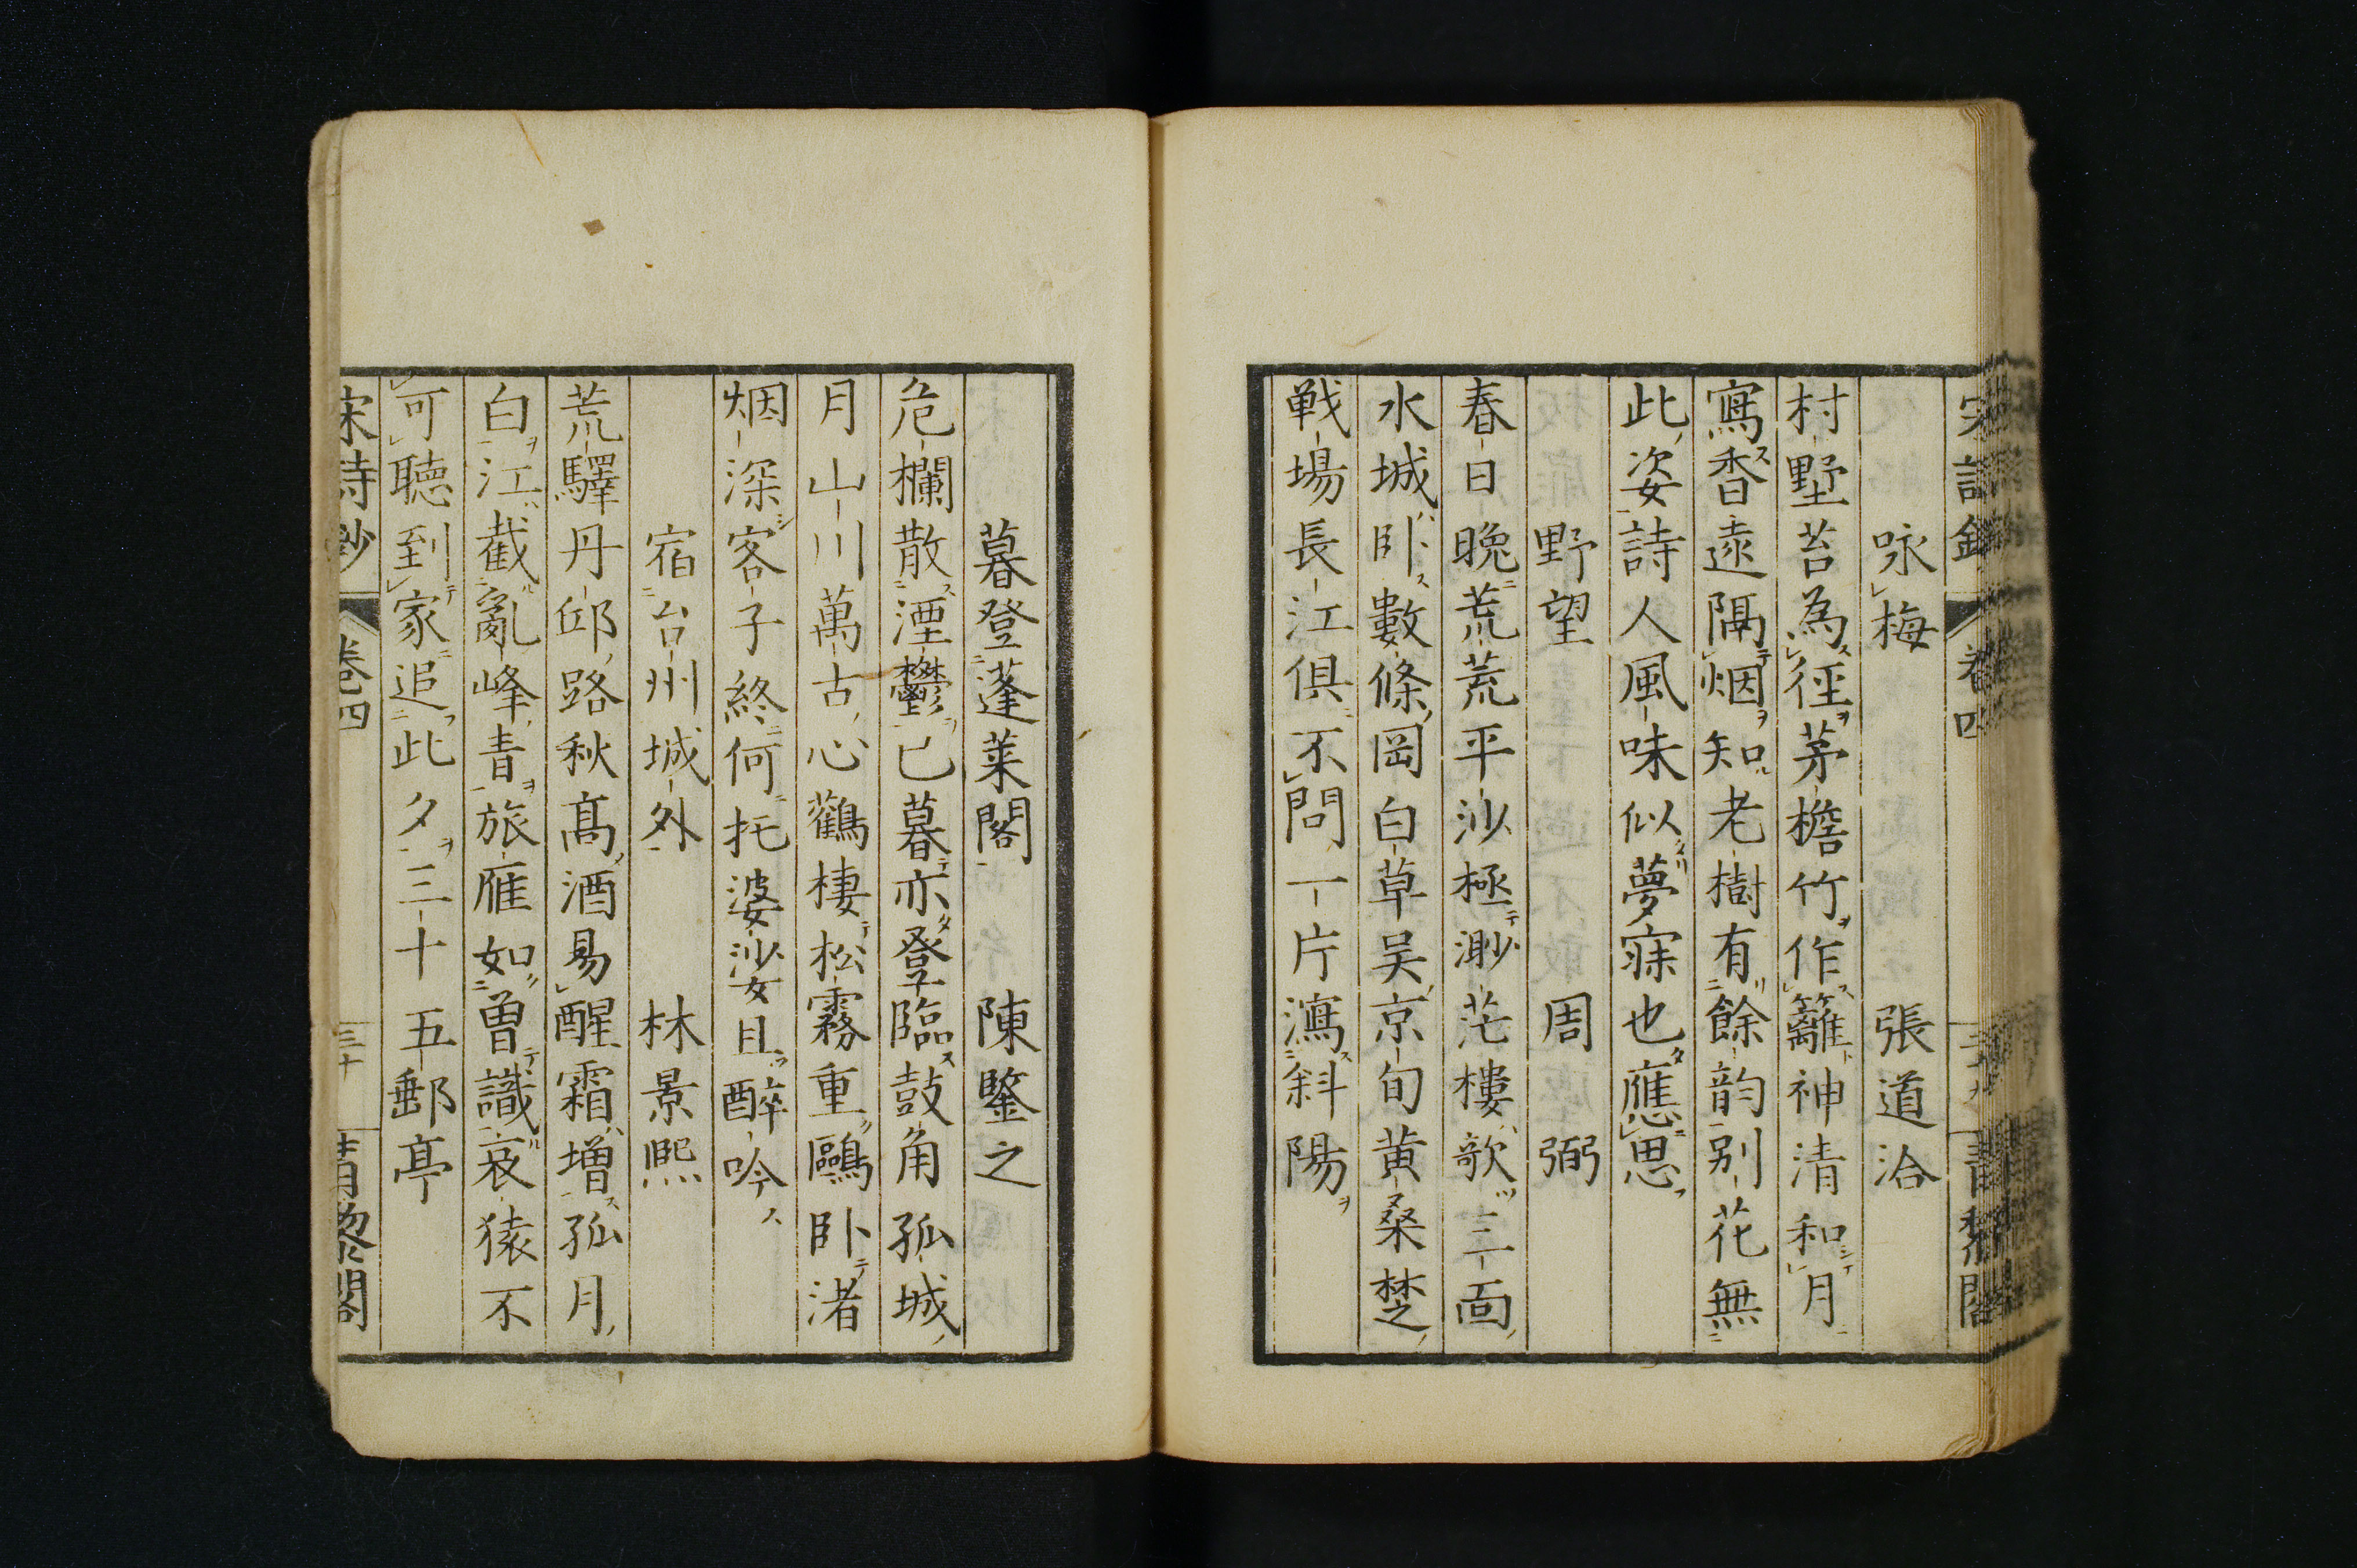 宋詩鈔 卷四 青藜閣
咏梅 張道洽
村墅苔為徑茅檐竹作籬神清和月
寫香遠隔烟知老樹有餘韵别花無
此姿詩人風味似夢寐也應思
野望 周弼
春日晚荒荒平沙極渺茫樓歌三一面
水城卧數條岡白草吴京甸黄桑楚
戦場長江俱不問一片瀉斜陽
暮登蓬莱閣 陳鑒之
危欄散湮鬱已暮亦登臨鼓角孤城
月山川萬古心鸛棲松霧重鷗卧渚
烟深客子終何托婆娑且醉吟
宿台州城外 林景熈
荒驛丹邱路秋髙酒易醒霜增孤月
白江截亂峰青旅雁如曽識哀猿不
可聴到家追此夕三十五郵亭
宋詩鈔 卷四 三十 青藜閣